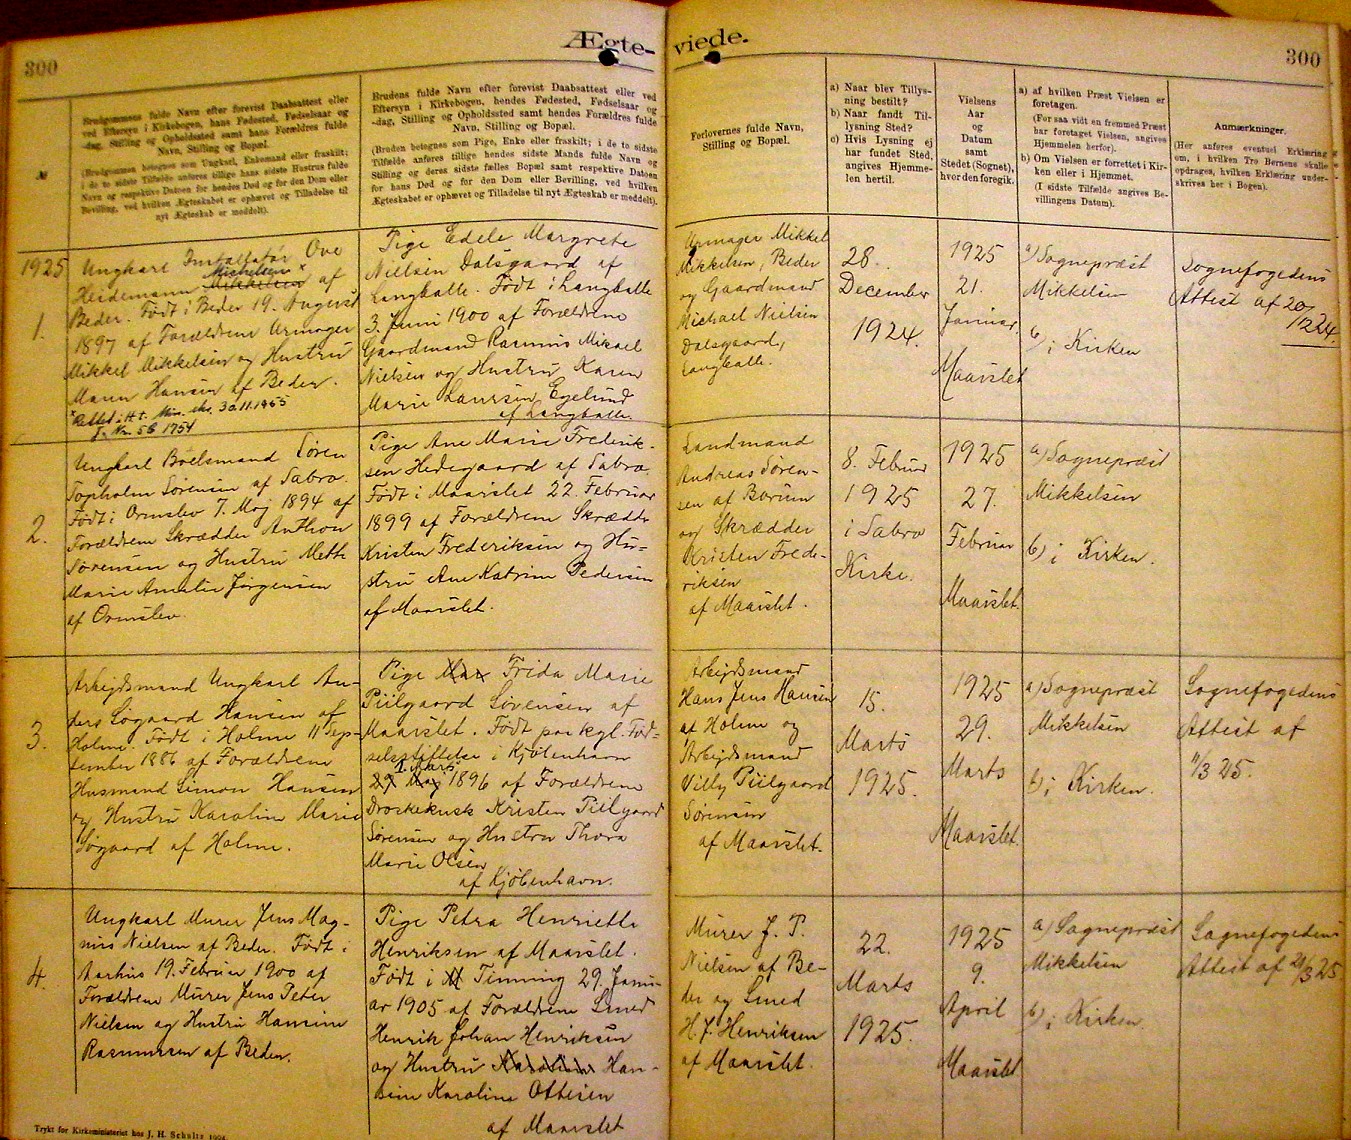 300
Ægte-
viede.
300
№
Brudgommens fulde Navn efter forevist Daabsattest eller
ved Eftersyn i Kirkebogen, hans Fødested, Fødselsaar og
-dag, Stilling og Opholdssted samt hans Forældres fulde
Navn, Stilling og Bopæl.
(Brudgommen betegnes som Ungkarl, Enkemand eller fraskilt;
i de to sidste Tilfælde anføres tillige hans sidste Hustrus fulde
Navn og respektive Datoen for hendes Død og for den Dom eller
Bevilling, ved hvilken Ægteskabet er ophævet og Tilladelse til
nyt Ægteskab er meddelt).
Brudens fulde Navn efter forevist Daabsattest eller ved
Eftersyn i Kirkebogen, hendes Fødested, Fødselsaar og
-dag, Stilling og Opholdssted samt hendes Forældres fulde
Navn, Stilling og Bopæl.
(Bruden betegnes som Pige, Enke eller fraskilt; i de to sidste
Tilfælde anføres tillige hendes sidste Mands fulde Navn og
Stilling og deres sidste fælles Bopæl samt respektive Datoen
for hans Død og for den Dom eller Bevilling, ved hvilken
Ægteskabet er ophævet og Tilladelse til nyt Ægteskab er meddelt).
Forlovernes fulde Navn,
Stilling og Bopæl.
a) Naar blev Tillys-
ning bestilt?
b) Naar fandt Til-
lysning Sted?
c) Hvis Lysning ej
har fundet Sted,
angives Hjemme-
len hertil.
Vielsens
Aar
og
Datum
samt
Stedet (Sognet),
hvor den foregik.
a) af hvilken Præst Vielsen er
foretagen.
(For saa vidt en fremmed Præst
har foretaget Vielsen, angives
Hjemmelen herfor).
b) Om Vielsen er forrettet i Kir-
ken eller i Hjemmet.
(I sidste Tilfælde angives Be-
villingens Datum).
Anmærkninger.
(Her anføres eventuel Erklæring
om, i hvilken Tro Børnene skulle
opdrages, hvilken Erklæring under-
skrives her i Bogen).
1925
1.
Ungkarl Installatør Ove
Michelsen x
Heidemann Mikkelsen af
Beder. Født i Beder 19. August
1897 af Forældrene Urmager
Mikkel Mikkelsen og Hustru
Maren Hansen af Beder.
x Rettet i H. t. Min. skr. 30.11.1955
J. Nr. 5 B 1754
Pige Edele Margrete
Nielsen Dalsgaard af
Langballe. Født i Langballe
3. Juni 1900 af Forældrene
Gaardmand Rasmus Mikael
Nielsen og Hustru Karen
Marie Laursen Egelund
af Langballe.
Urmager Mikkel
Mikkelsen, Beder
og Gaardmand
Michael Nielsen
Dalsgaard,
Langballe.
28.
December
1924.
1925
21.
Januar,
Maarslet
a) Sognepræst
Mikkelsen
b) i Kirken
Sognefogedens
Attest af 20/
12 24.
2.
Ungkarl Boelsmand Søren
Topholm Sørensen af Sabro.
Født i Ormslev 7. Maj 1894 af
Forældrene Skrædder Anthon
Sørensen og Hustru Mette
Marie Amalie Jørgensen
af Ormslev.
Pige Ane Marie Frederik-
sen Hedegaard af Sabro.
Født i Maarslet 22. Februar
1899 af Forældrene Skrædder
Kristen Frederiksen og Hu-
stru Ane Katrine Pedersen
af Maarslet.
Landmand
Andreas Søren-
sen af Borum
og Skrædder
Kristen Frede-
riksen
af Maarslet.
8. Februar
1925
i Sabro
Kirke.
1925
27.
Februar
Maarslet.
a) Sognepræst
Mikkelsen
b) i Kirken.
3.
Arbejdsmand Ungkarl An-
ders Søgaard Hansen af
Holme. Født i Holme 11 Sep-
tember 1886 af Forældrene
Husmand Simon Hansen
og Hustru Karoline Marie
Søgaard af Holme.
Pige Frida Marie
Piilgaard Sørensen af
Maarslet. Født paa kgl. Fød-
selsstiftelse i Kjøbenhavn
1. Marts
27 Maj 1896 af Forældrene
Droskekusk Kristen Piilgaard
Sørensen og Hustru Thora
Marie Olsen
af Kjøbenhavn.
Arbejdsmand
Hans Jens Hansen
af Holme og
Arbejdsmand
Villy Piilgaard
Sørensen
af Maarslet.
15.
Marts
1925.
1925
29.
Marts
Maarslet.
a) Sognepræst
Mikkelsen
b) i Kirken.
Sognefogedens
Attest af
11/3 25.
4.
Ungkarl Murer Jens Mag-
nus Nielsen af Beder. Født i
Aarhus 19. Februar 1900 af
Forældrene Murer Jens Peter
Nielsen og Hustru Hansine
Rasmussen af Beder.
Pige Petra Henriette
Henriksen af Maarslet.
Født i M Tinning 29. Janu-
ar 1905 af Forældrene Smed
Henrik Johan Henriksen
og Hustru Karoline Han-
sine Karoline Ottesen
af Maarslet
Murer J. P.
Nielsen af Be-
der og Smed
H. J. Henriksen
af Maarslet.
22.
Marts
1925.
1925
9.
April
Maarslet
a) Sognepræst
Mikkelsen
b) i Kirken.
Sognefogedens
Attest af 21/3 25
Trykt for Kirkeministeriet hos J. H. Schultz 1924.